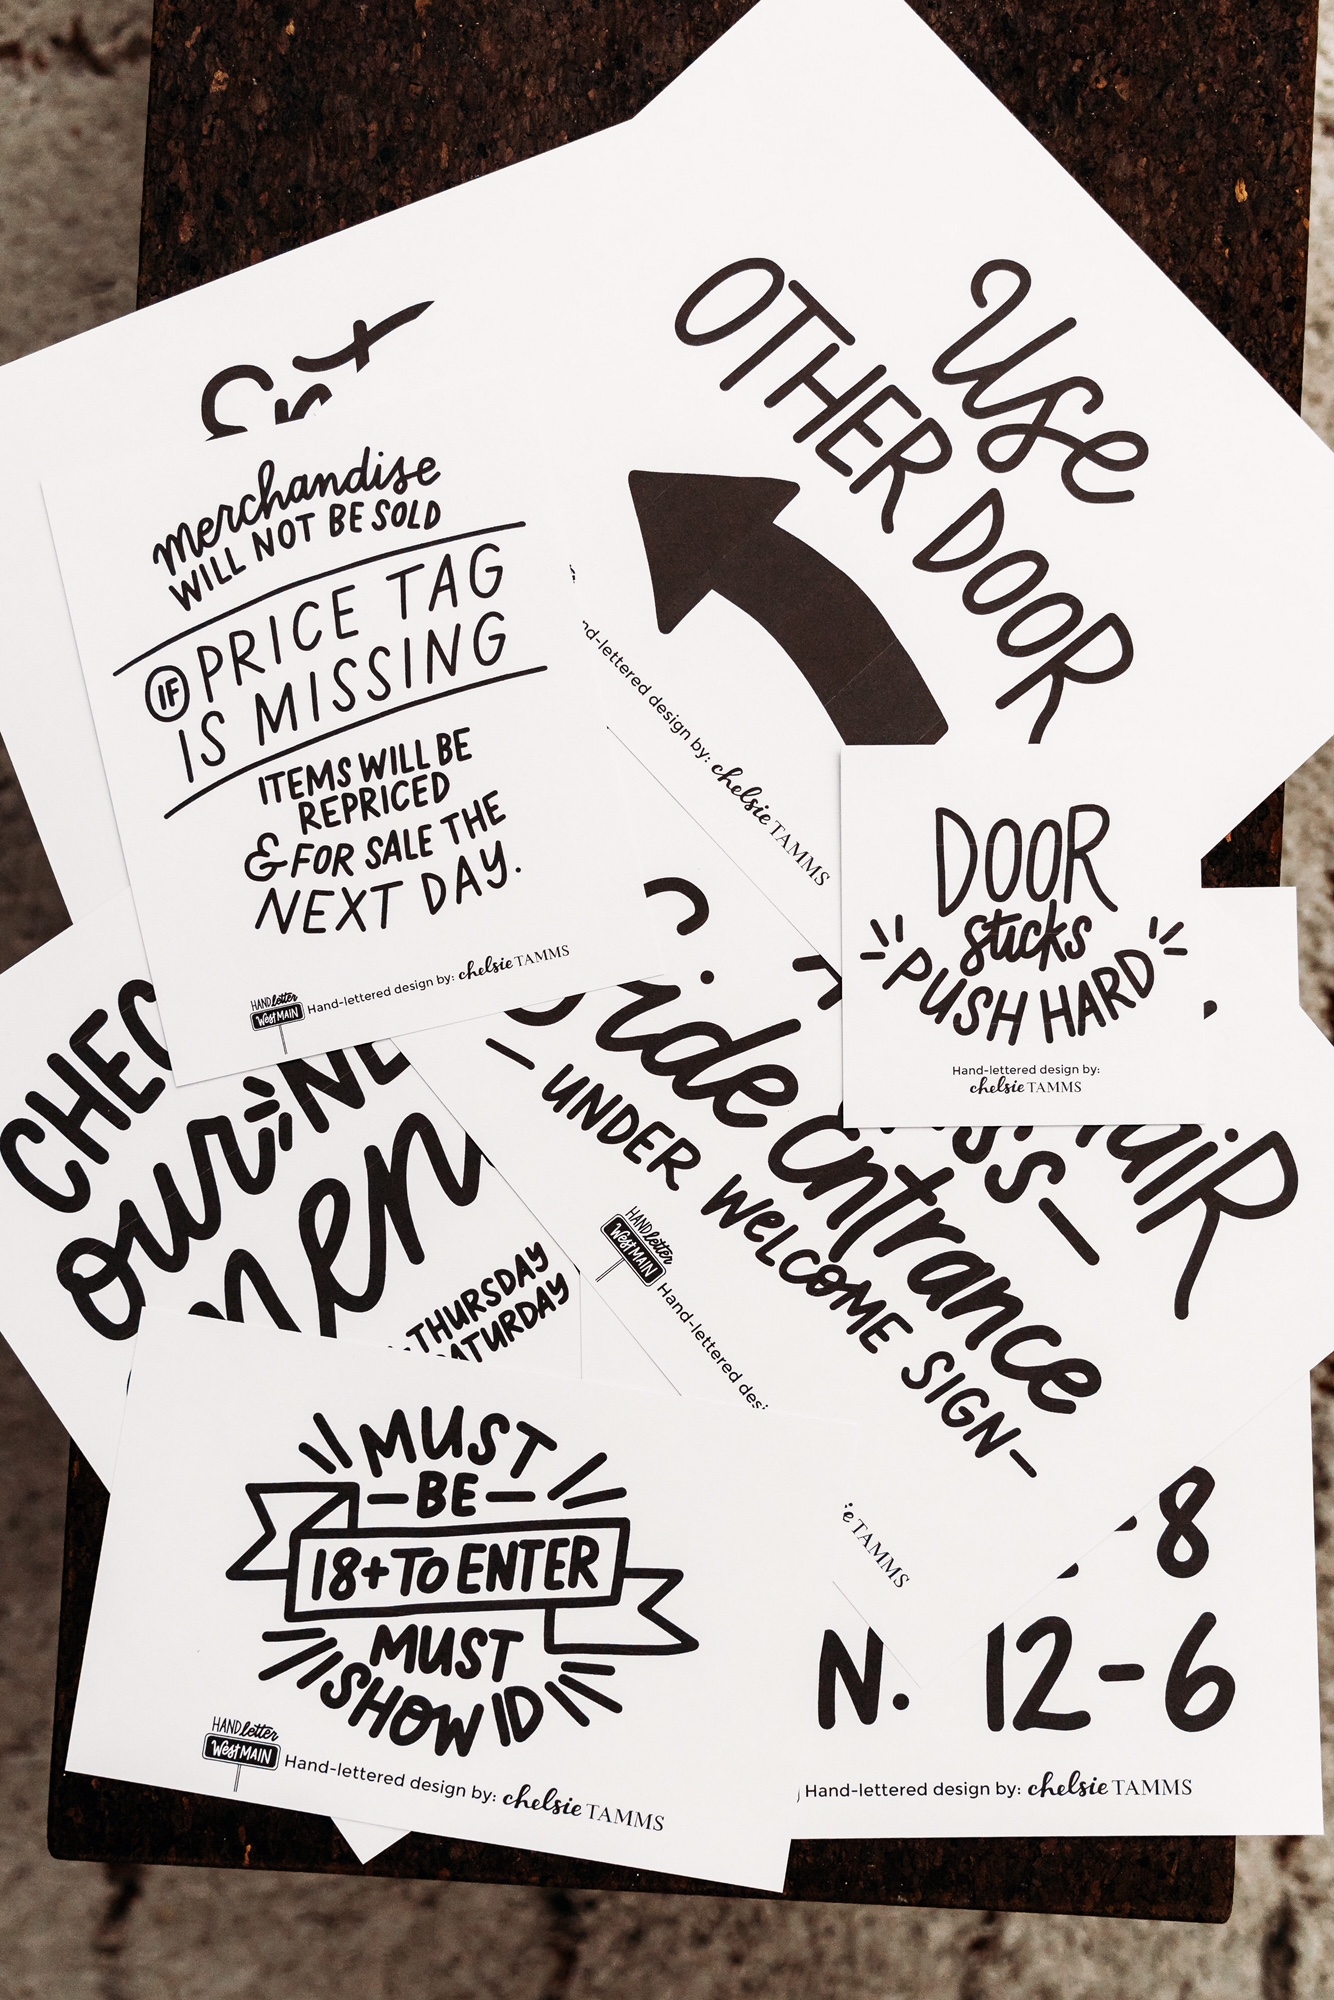 Use
OTHER DOOR
nd-lettered design by: chelsie TAMMS
merchandise
WILL NOT BE SOLD
IF PRICE TAG
IS MISSING
ITEMS WILL BE
REPRICED
& FOR SALE THE
NEXT DAY.
HANDletter
West MAIN
Hand-lettered design by: chelsie TAMMS
DOOR
sticks
PUSH HARD
Hand-lettered design by:
chelsie TAMMS
CHEC
our NE
men
THURSDAY
ATURDAY
Side Entrance
— UNDER WELCOME SIGN —
HANDletter
West MAIN
Hand-lettered desi
e TAMMS
ss —
haiR
MUST
— BE —
18+ TO ENTER
MUST
SHOW ID
HANDletter
West MAIN
Hand-lettered design by: chelsie TAMMS
8
N. 12-6
Hand-lettered design by: chelsie TAMMS